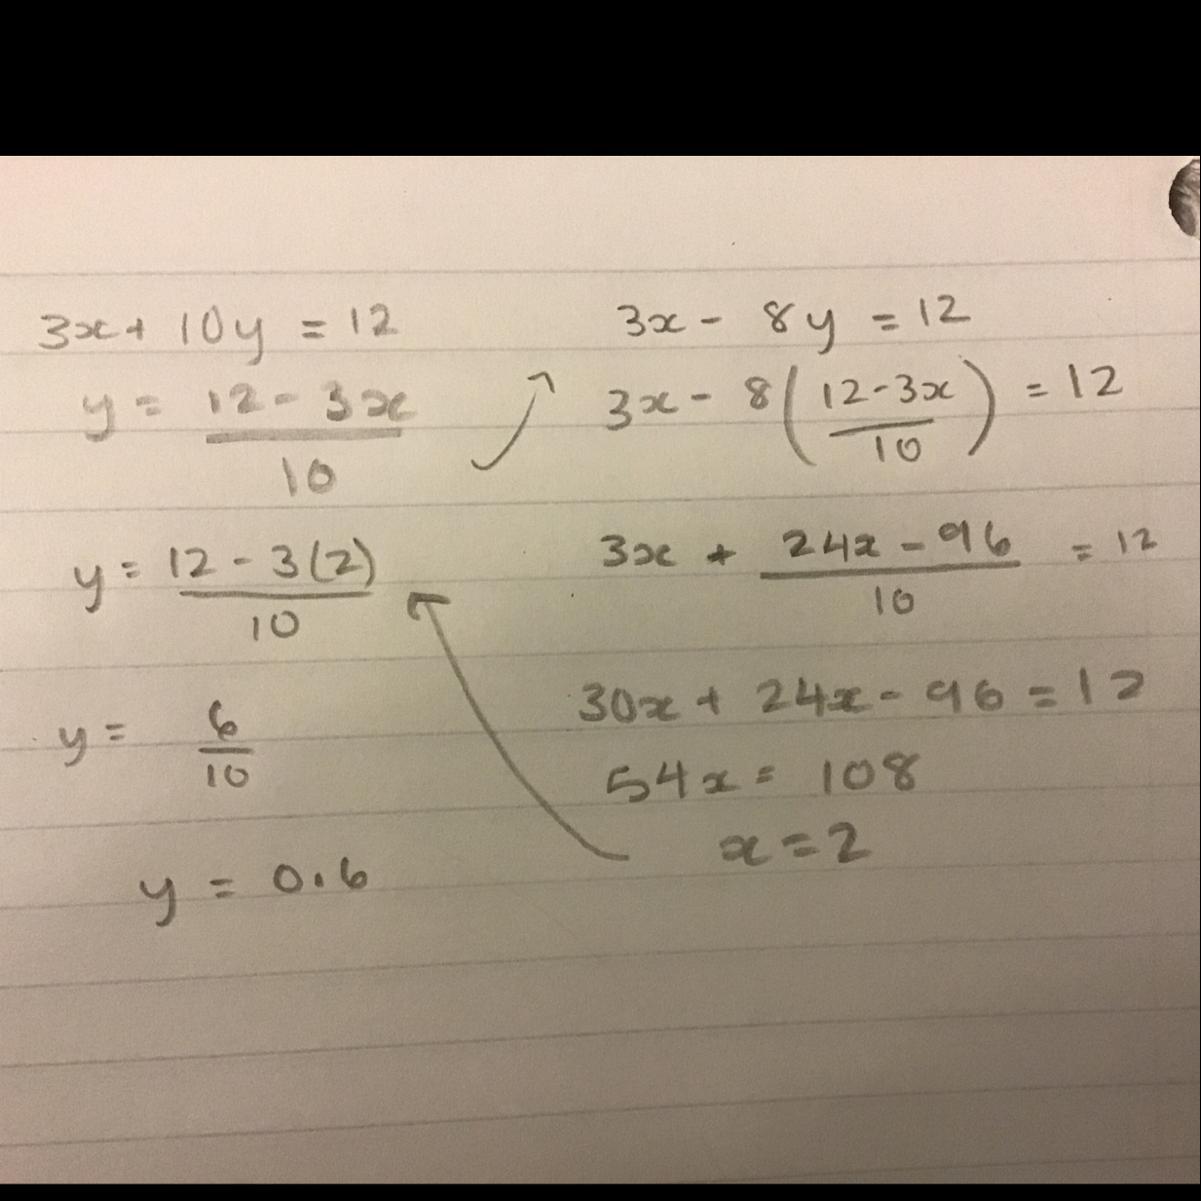 3x + 10y = 12
y = (12 - 3x)/10
y = (12 - 3(2))/10
y = 6/10
y = 0.6
3x - 8y = 12
3x - 8((12-3x)/10) = 12
3x + (24x - 96)/10 = 12
30x + 24x - 96 = 12
54x = 108
x = 2